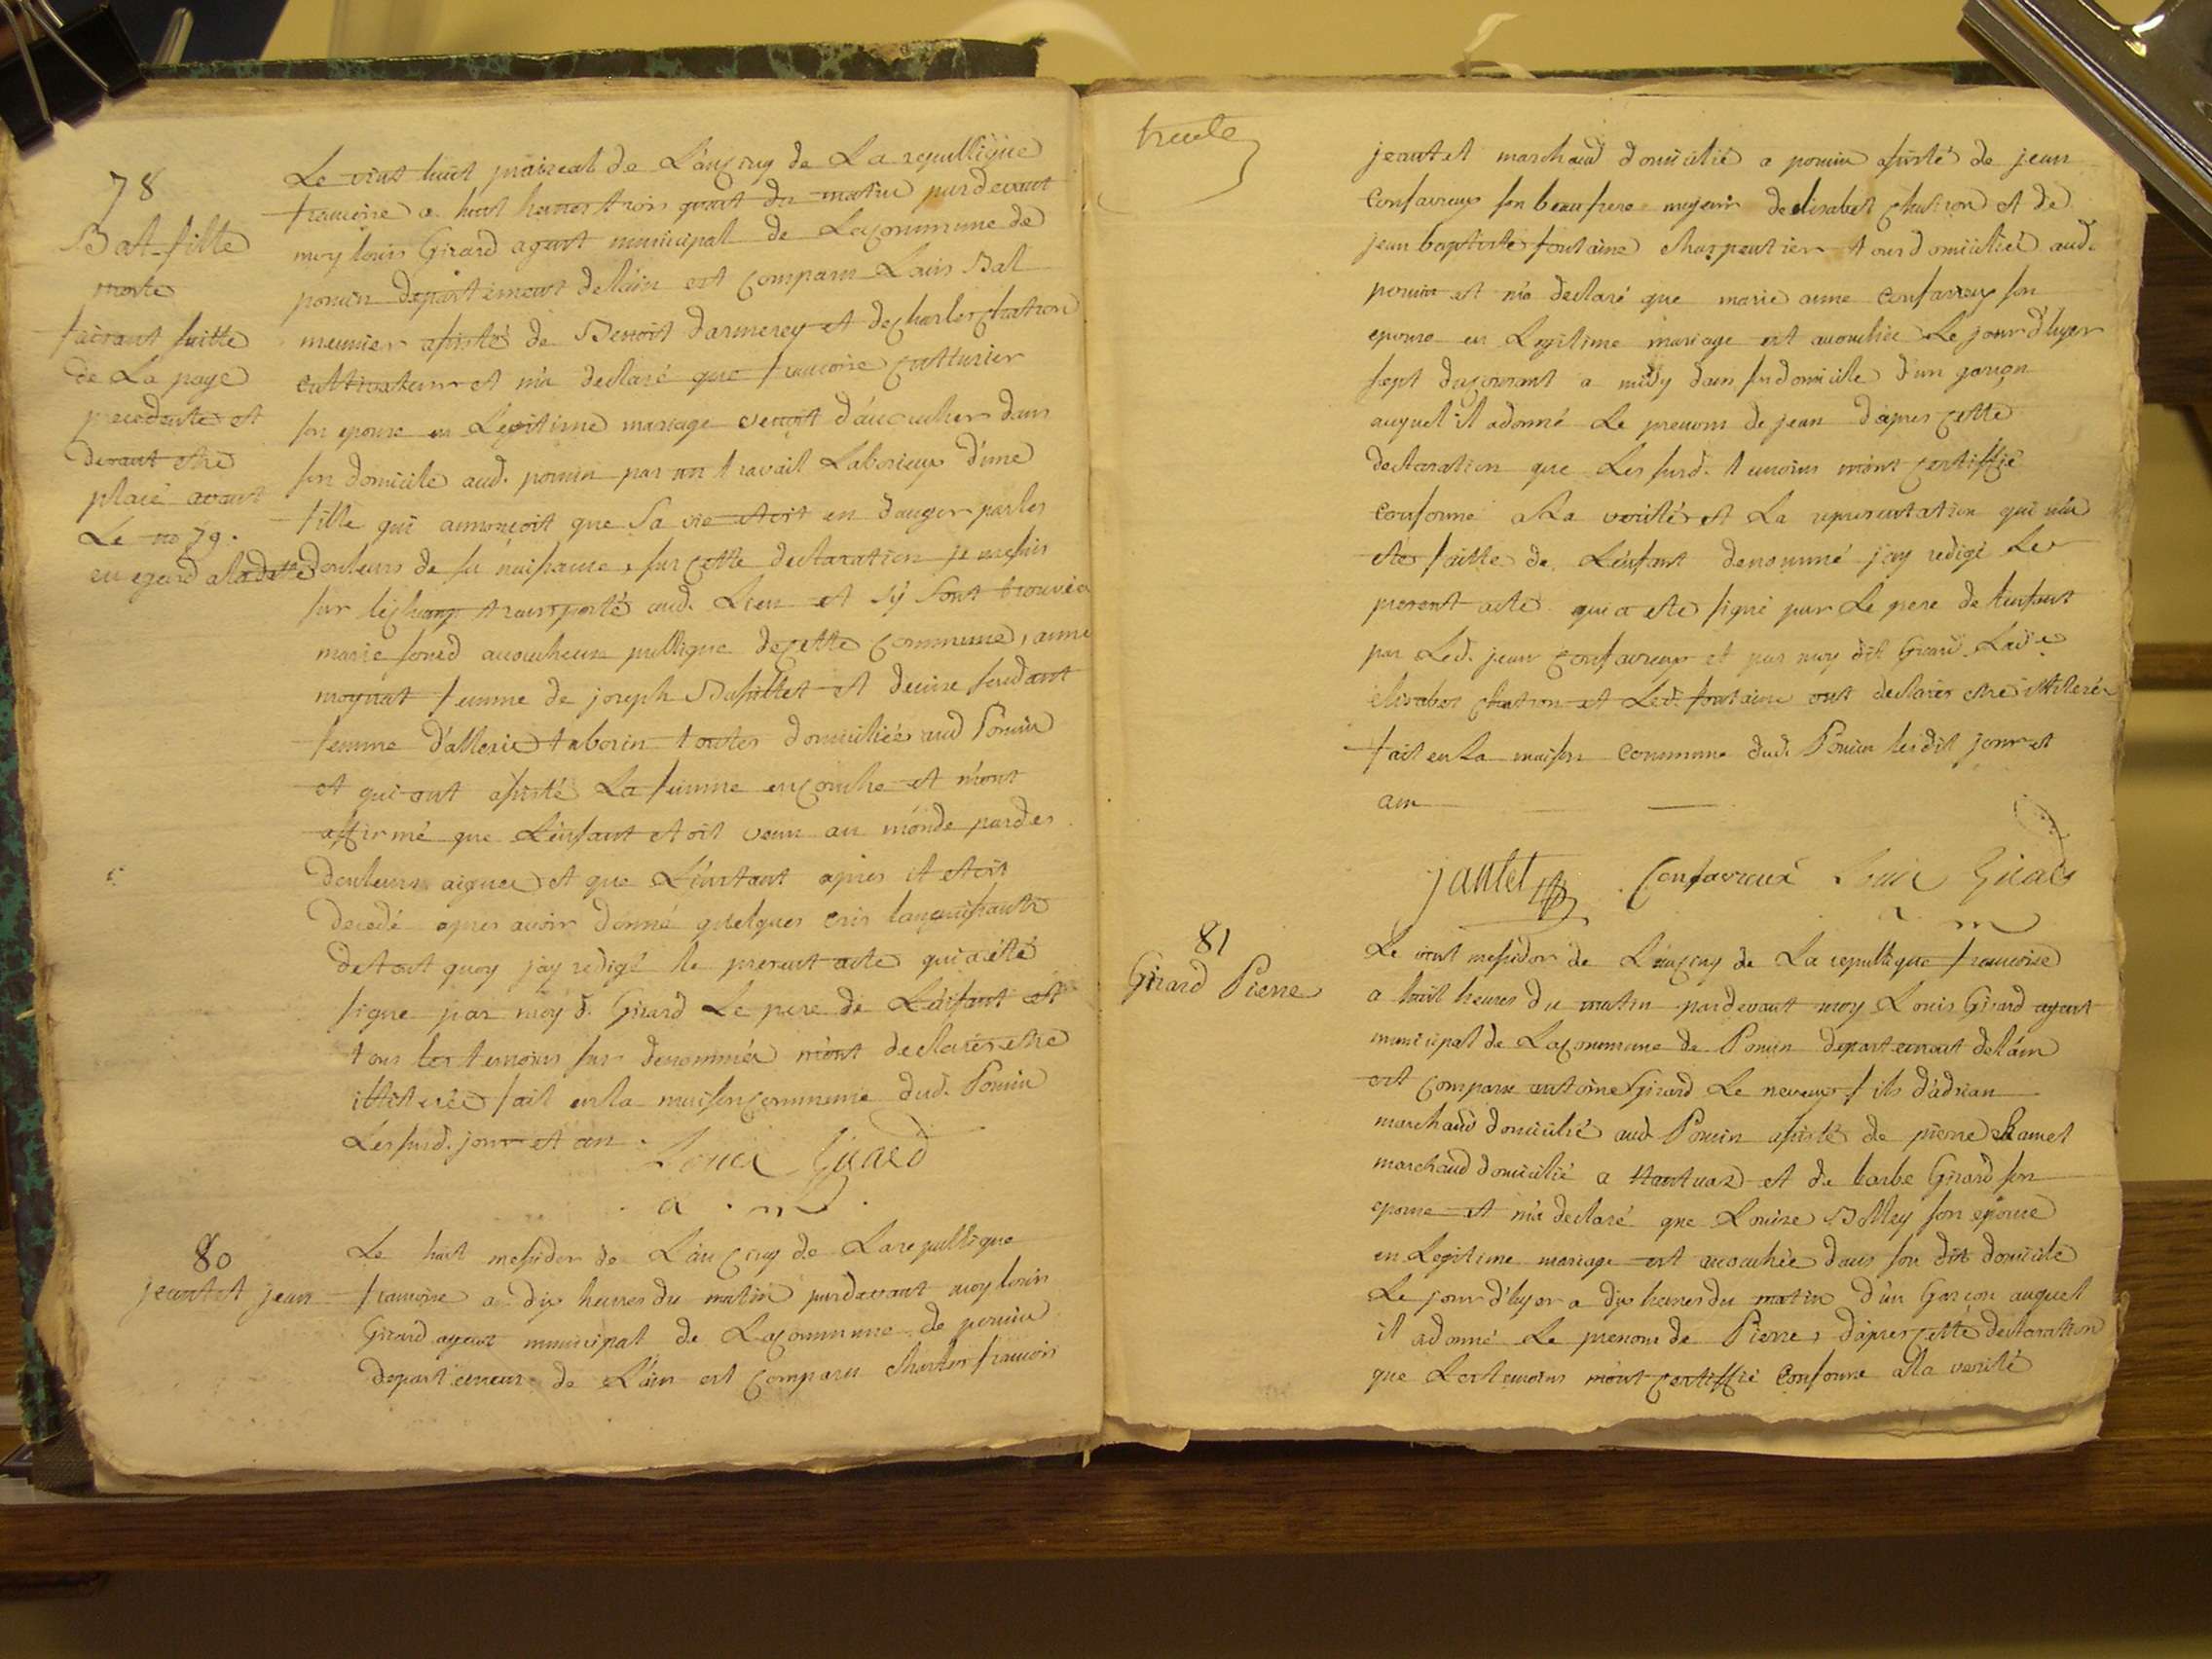 78
Bat fille
morte
faisant suitte
de La page
precedente et
devant etre
placé avant
Le no 79.
eu egard aladatte
Le vint huit prairial de L'an cinq de La republique
francoise a huit heures trois quart du matin pardevant
moy louis Girard agent municipal de La commune de
poncin departement delain est comparu Louis Bat
meunier assisté de Benoit darmerey et de charles chatron
cultivateurs et m'a declaré que francoise cutturier
son epouse en Legitime mariage venoit d'accoucher dans
son domicile aud. poncin par un travail Laborieux d'une
fille qui annoncoit que sa vie etoit en danger par les
douleurs de sa naissance, sur cette declaration je me suis
sur lechamp transporté aud. Lieu et s'y sont trouvées
marie accoucheuse publique de cette commune, anne
moynat femme de joseph et denise
femme d'allerie taborin toutes domiciliées aud Poncin
et qui ont assisté La femme en couche et m'ont
affirmé que L'enfant etoit venu au monde par des
douleurs aigues et que L'instant apres il etoit
decedé apres avoir donné quelques cris languissants
detout quoy jay redigé le present acte qui a été
signe par moy d. Girard Le pere de L'enfant et
tous les temoins sus denommés m'ont declarés etre
illiterés fait en la maison commune dud. Poncin
Les susd. jour et an.
Louis Girard
a . m .
80
jeantet jean
Le huit messidor de L'an cinq de La republique
francoise a dix heures du matin pardevant moy louis
Girard agent municipal de La commune de poncin
departement de L'ain est comparu charles francois
trente
jeantet marchand domicilié a poncin assisté de jean
confavreux son beau frere de elisabet chatron et de
jean baptiste fontaine charpentier tous domiciliés aud.
poncin et m'a declaré que marie anne confavreux son
epouse en Legitime mariage est accouchée Le jour d'hyer
sept du courant a midy dans son domicile d'un garçon
auquel il a donné Le prenom de jean d'apres cette
declaration que Les susd. temoins m'ont certiffié
conforme a La verité et La representation qui m'a
eté faitte de L'enfant denommé jay redigé Le
present acte qui a eté signé par Le pere de L'enfant
par Led. jean confavreux et par moy dit Girard Ladte
elisabet chatron et Led. fontaine ont declarés etre illiterés
fait en La maison commune dud. Poncin lesdit jour et
an
jantet Confavreux Louis Girard
a m
81
Girard Pierre
Le vint messidor de L'an cinq de La republique francoise
a huit heures du matin pardevant moy Louis Girard agent
municipal de La commune de Poncin departement delain
est comparu antoine Girard Le neveux fils d'adrian
marchand domicilié aud Poncin assisté de pierre
marchand domicilié a Nantua et de barbe Girard son
epouse et m'a declaré que Louise Bolley son epouse
en Legitime mariage est accouchée dans son dit domicile
Le jour d'hyer a dix heures du matin d'un Garcon auquel
il a donné Le prenom de Pierre, d'apres cette declaration
que Les temoins m'ont certiffié conforme a La verité